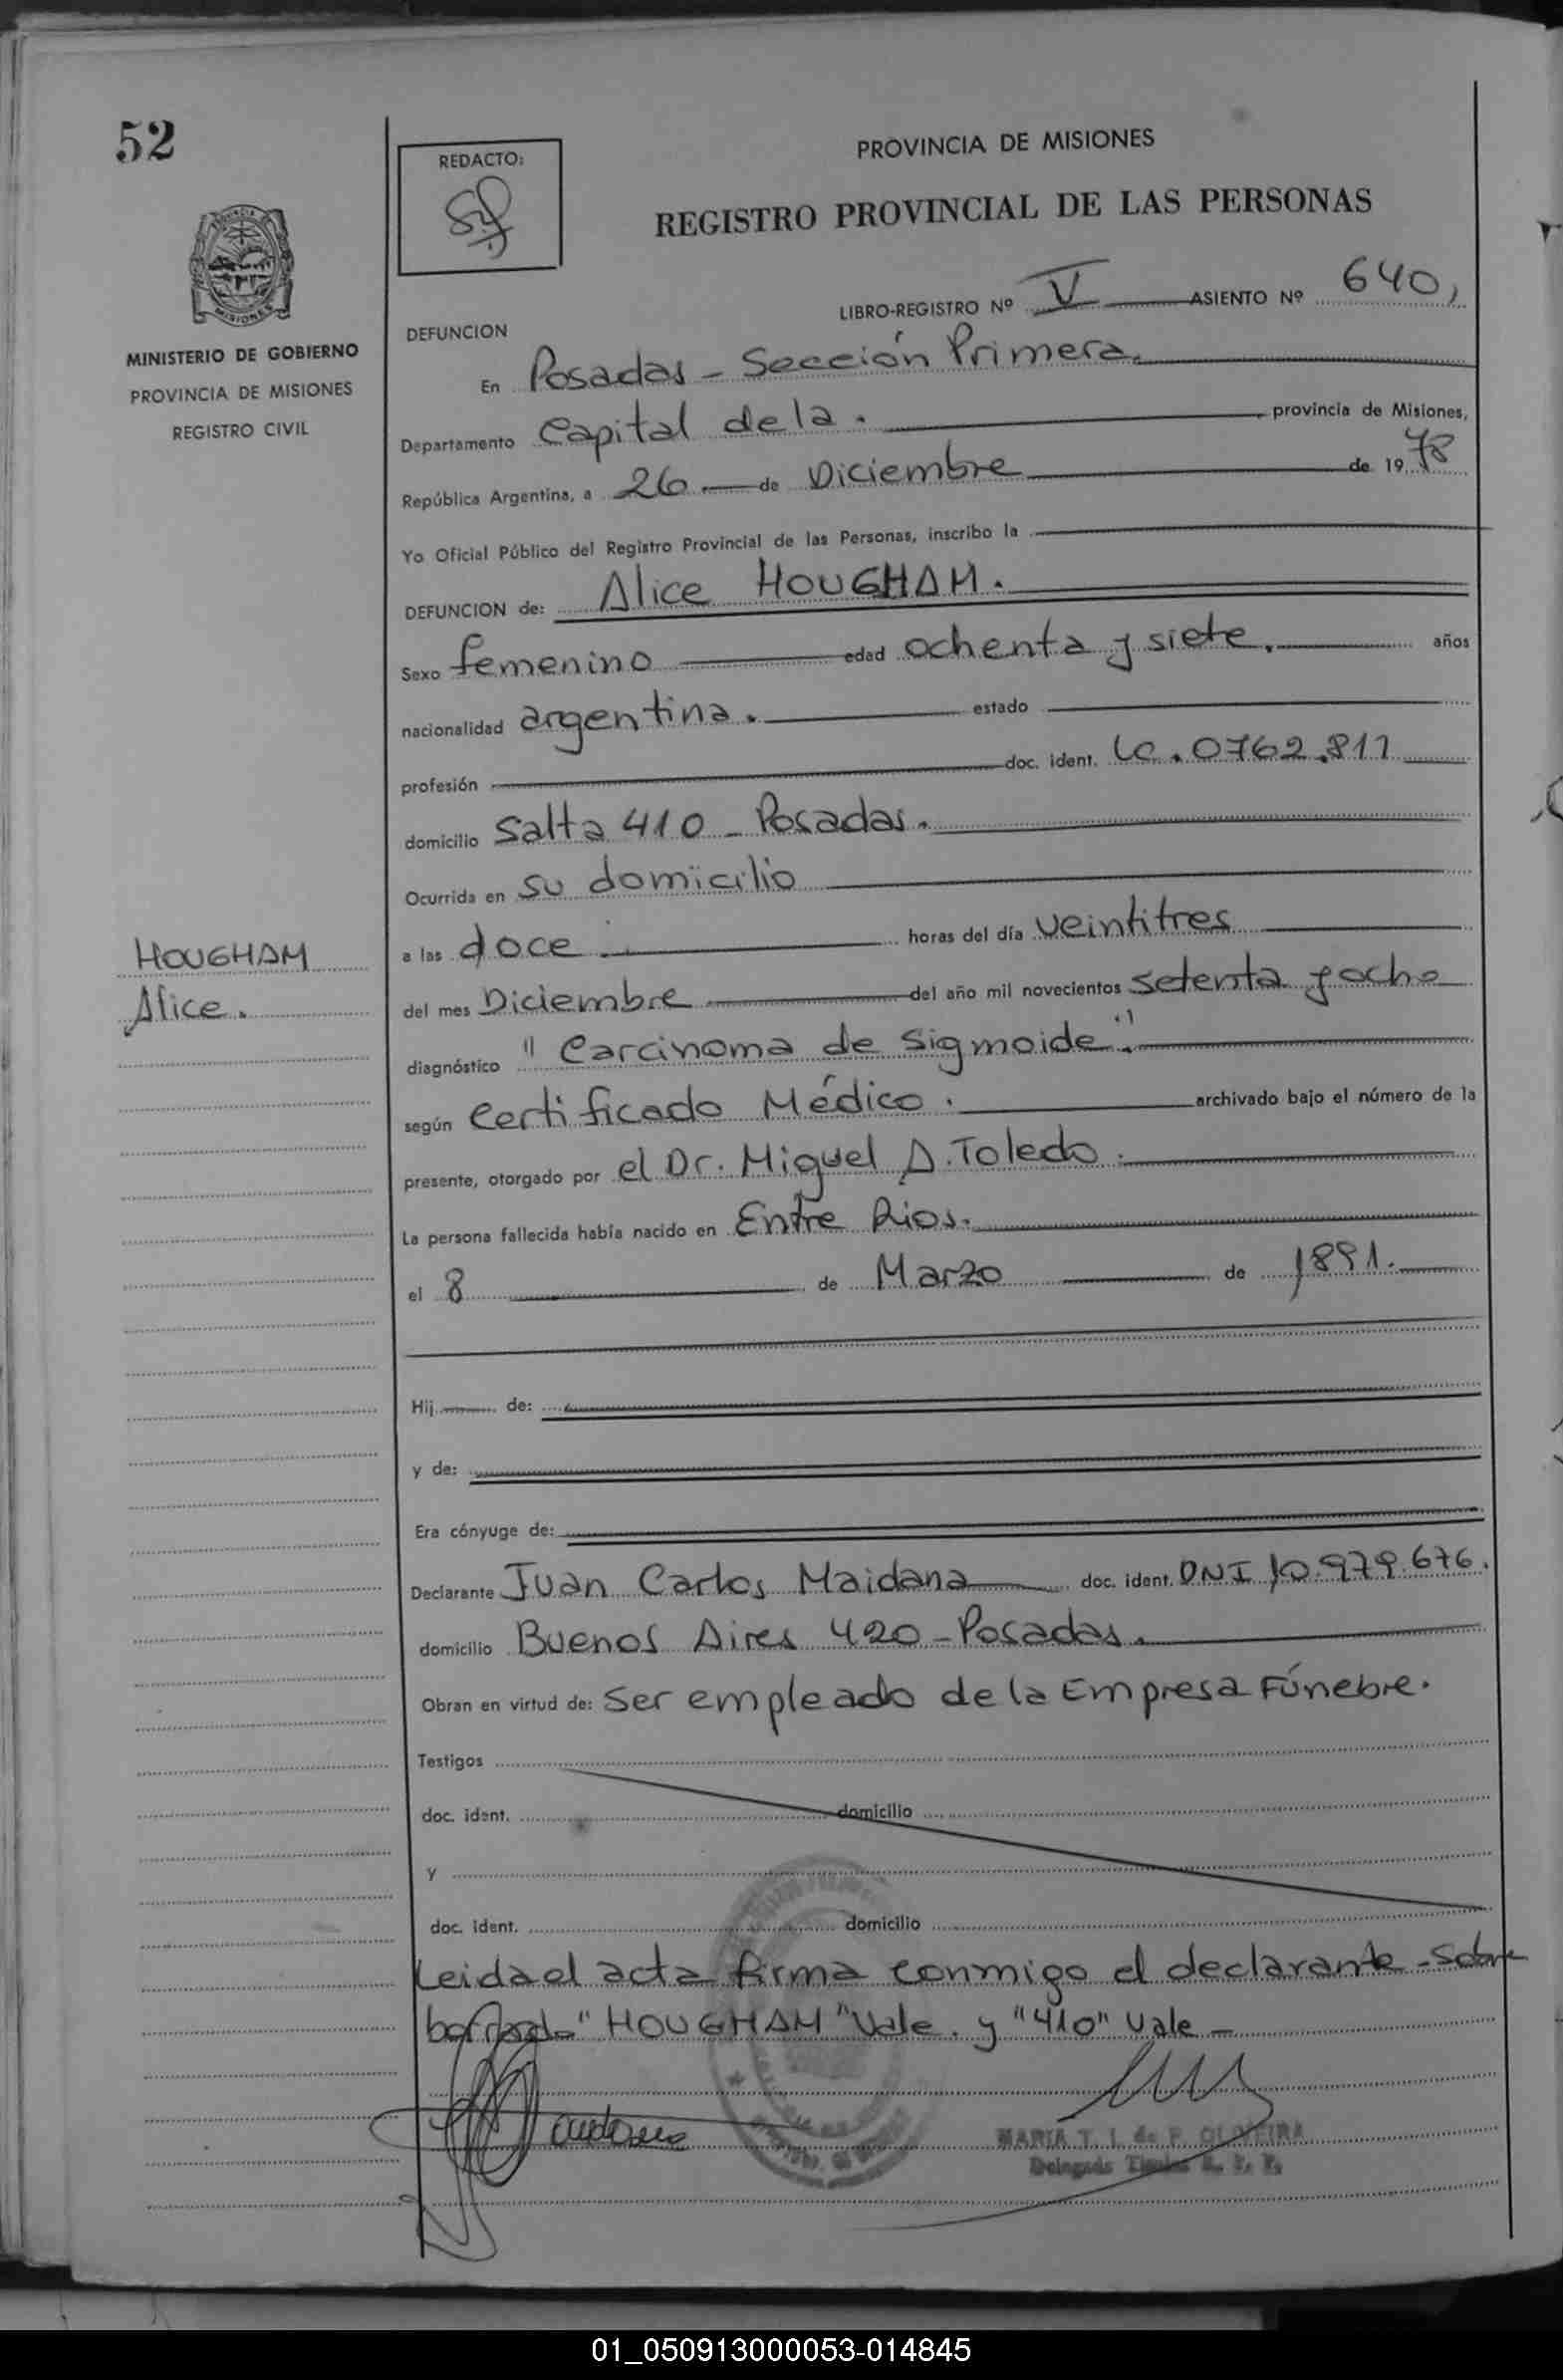 52
REDACTO:
PROVINCIA DE MISIONES
REGISTRO PROVINCIAL DE LAS PERSONAS
MISIONES
MINISTERIO DE GOBIERNO
PROVINCIA DE MISIONES
REGISTRO CIVIL
LIBRO-REGISTRO Nº V ASIENTO Nº 640,
DEFUNCION
En Posadas - Sección Primera.
Departamento Capital de la . provincia de Misiones,
República Argentina, a 26 de Diciembre de 1978
Yo Oficial Público del Registro Provincial de las Personas, inscribo la
DEFUNCION de: Alice HOUGHAM.
Sexo femenino edad ochenta y siete. años
nacionalidad argentina. estado
profesión doc. ident. LC. 0762.811
domicilio Salta 410 - Posadas.
Ocurrida en su domicilio
HOUGHAM
Alice.
a las doce horas del día veintitres
del mes Diciembre del año mil novecientos setenta y ocho
diagnóstico "Carcinoma de Sigmoide".
según Certificado Médico. archivado bajo el número de la
presente, otorgado por el Dr. Miguel A. Toledo.
La persona fallecida había nacido en Entre Rios.
el 8 de Marzo de 1891.
Hij de:
y de:
Era cónyuge de:
Declarante Juan Carlos Maidana doc. ident. DNI 10.979.676.
domicilio Buenos Aires 420 - Posadas.
Obran en virtud de: Ser empleado de la Empresa Fúnebre.
Testigos
doc. ident. domicilio
y
doc. ident. domicilio
Leida el acta firma conmigo el declarante - Sobre
borrado "HOUGHAM" Vale. y "410" Vale -
MARIA T. I. de P. OLIVEIRA
Delegada Titular R. P. P.
01_050913000053-014845